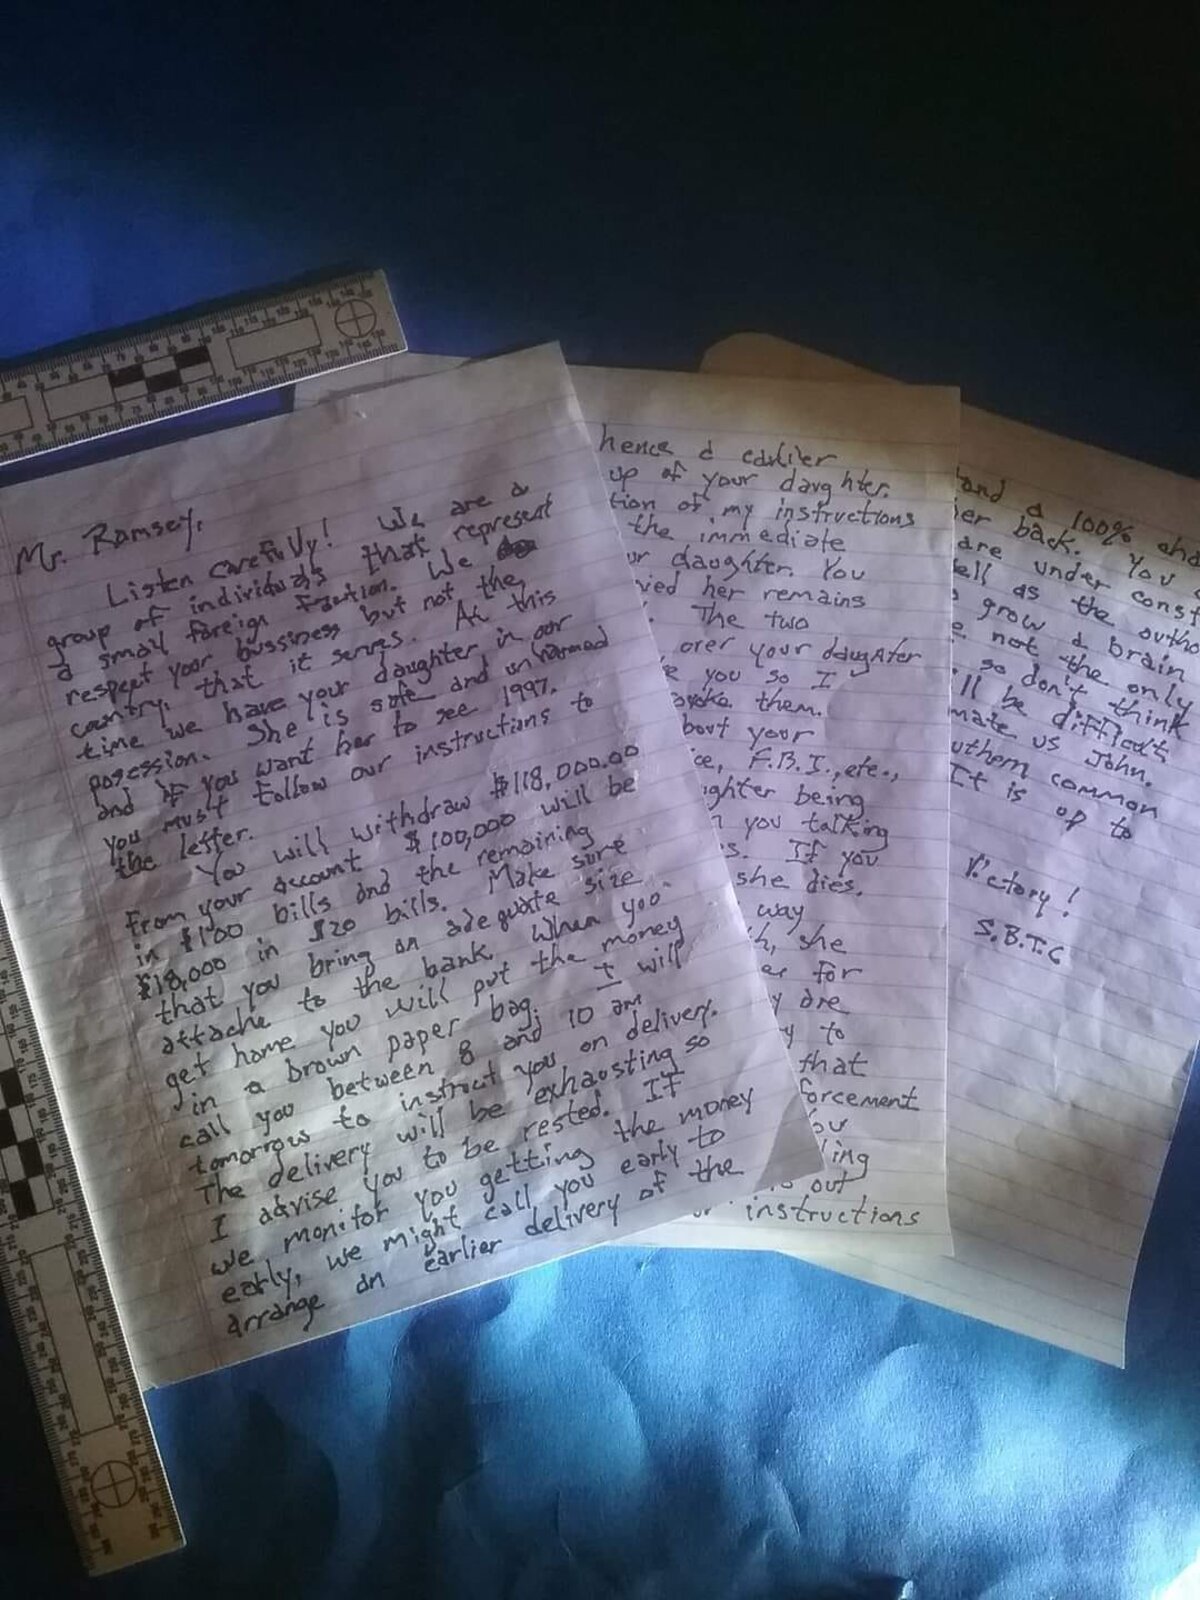 Mr. Ramsey,
Listen carefully! We are a
group of individuals that represent
a small foreign faction. We
respect your bussiness but not the
country that it serves. At this
time we have your daughter in our
posession. She is safe and unharmed
and if you want her to see 1997,
you must follow our instructions to
the letter.
You will withdraw $118,000.00
from your account. $100,000 will be
in $100 bills and the remaining
$18,000 in $20 bills. Make sure
that you bring an adequate size
attache to the bank. When you
get home you will put the money
in a brown paper bag. I will
call you between 8 and 10 am
tomorrow to instruct you on delivery.
The delivery will be exhausting so
I advise you to be rested. If
we monitor you getting the money
early, we might call you early to
arrange an earlier delivery of the
hence a earlier
up of your daughter.
tion of my instructions
the immediate
ur daughter. You
nied her remains
The two
over your daughter
e you so I
ovoke them.
bout your
ice, F.B.I., etc.,
ughter being
n you talking
s. If you
she dies.
way
h, she
es for
y are
y to
that
forcement
ou
ling
s out
ur instructions
and a 100% cha
her back. You
are under const
ell as the autho
grow a brain
e not the only
so don't think
ll be difficult
mate us John.
uthern common
It is up to
Victory!
S.B.T.C